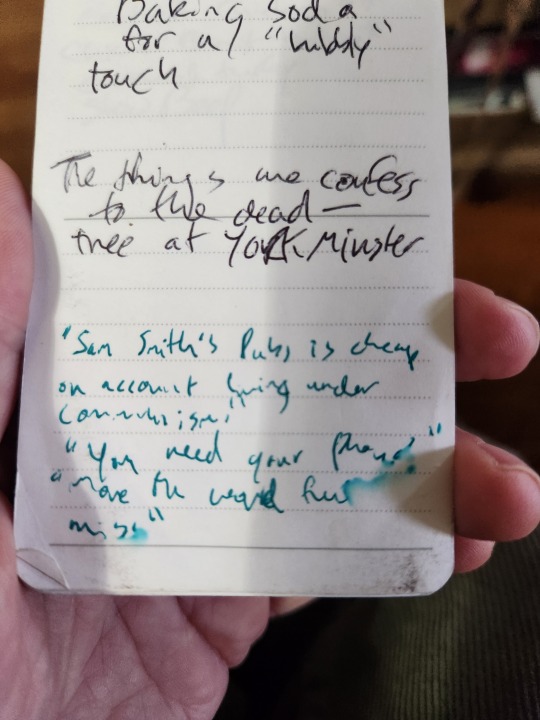 Baking Soda
for a "nibbly"
touch
The things we confess
to the dead —
tree at York Minster
"Sam Smith's Pubs is cheap
on account living under
Communism"
"You need your phone"
"move the word
miss"